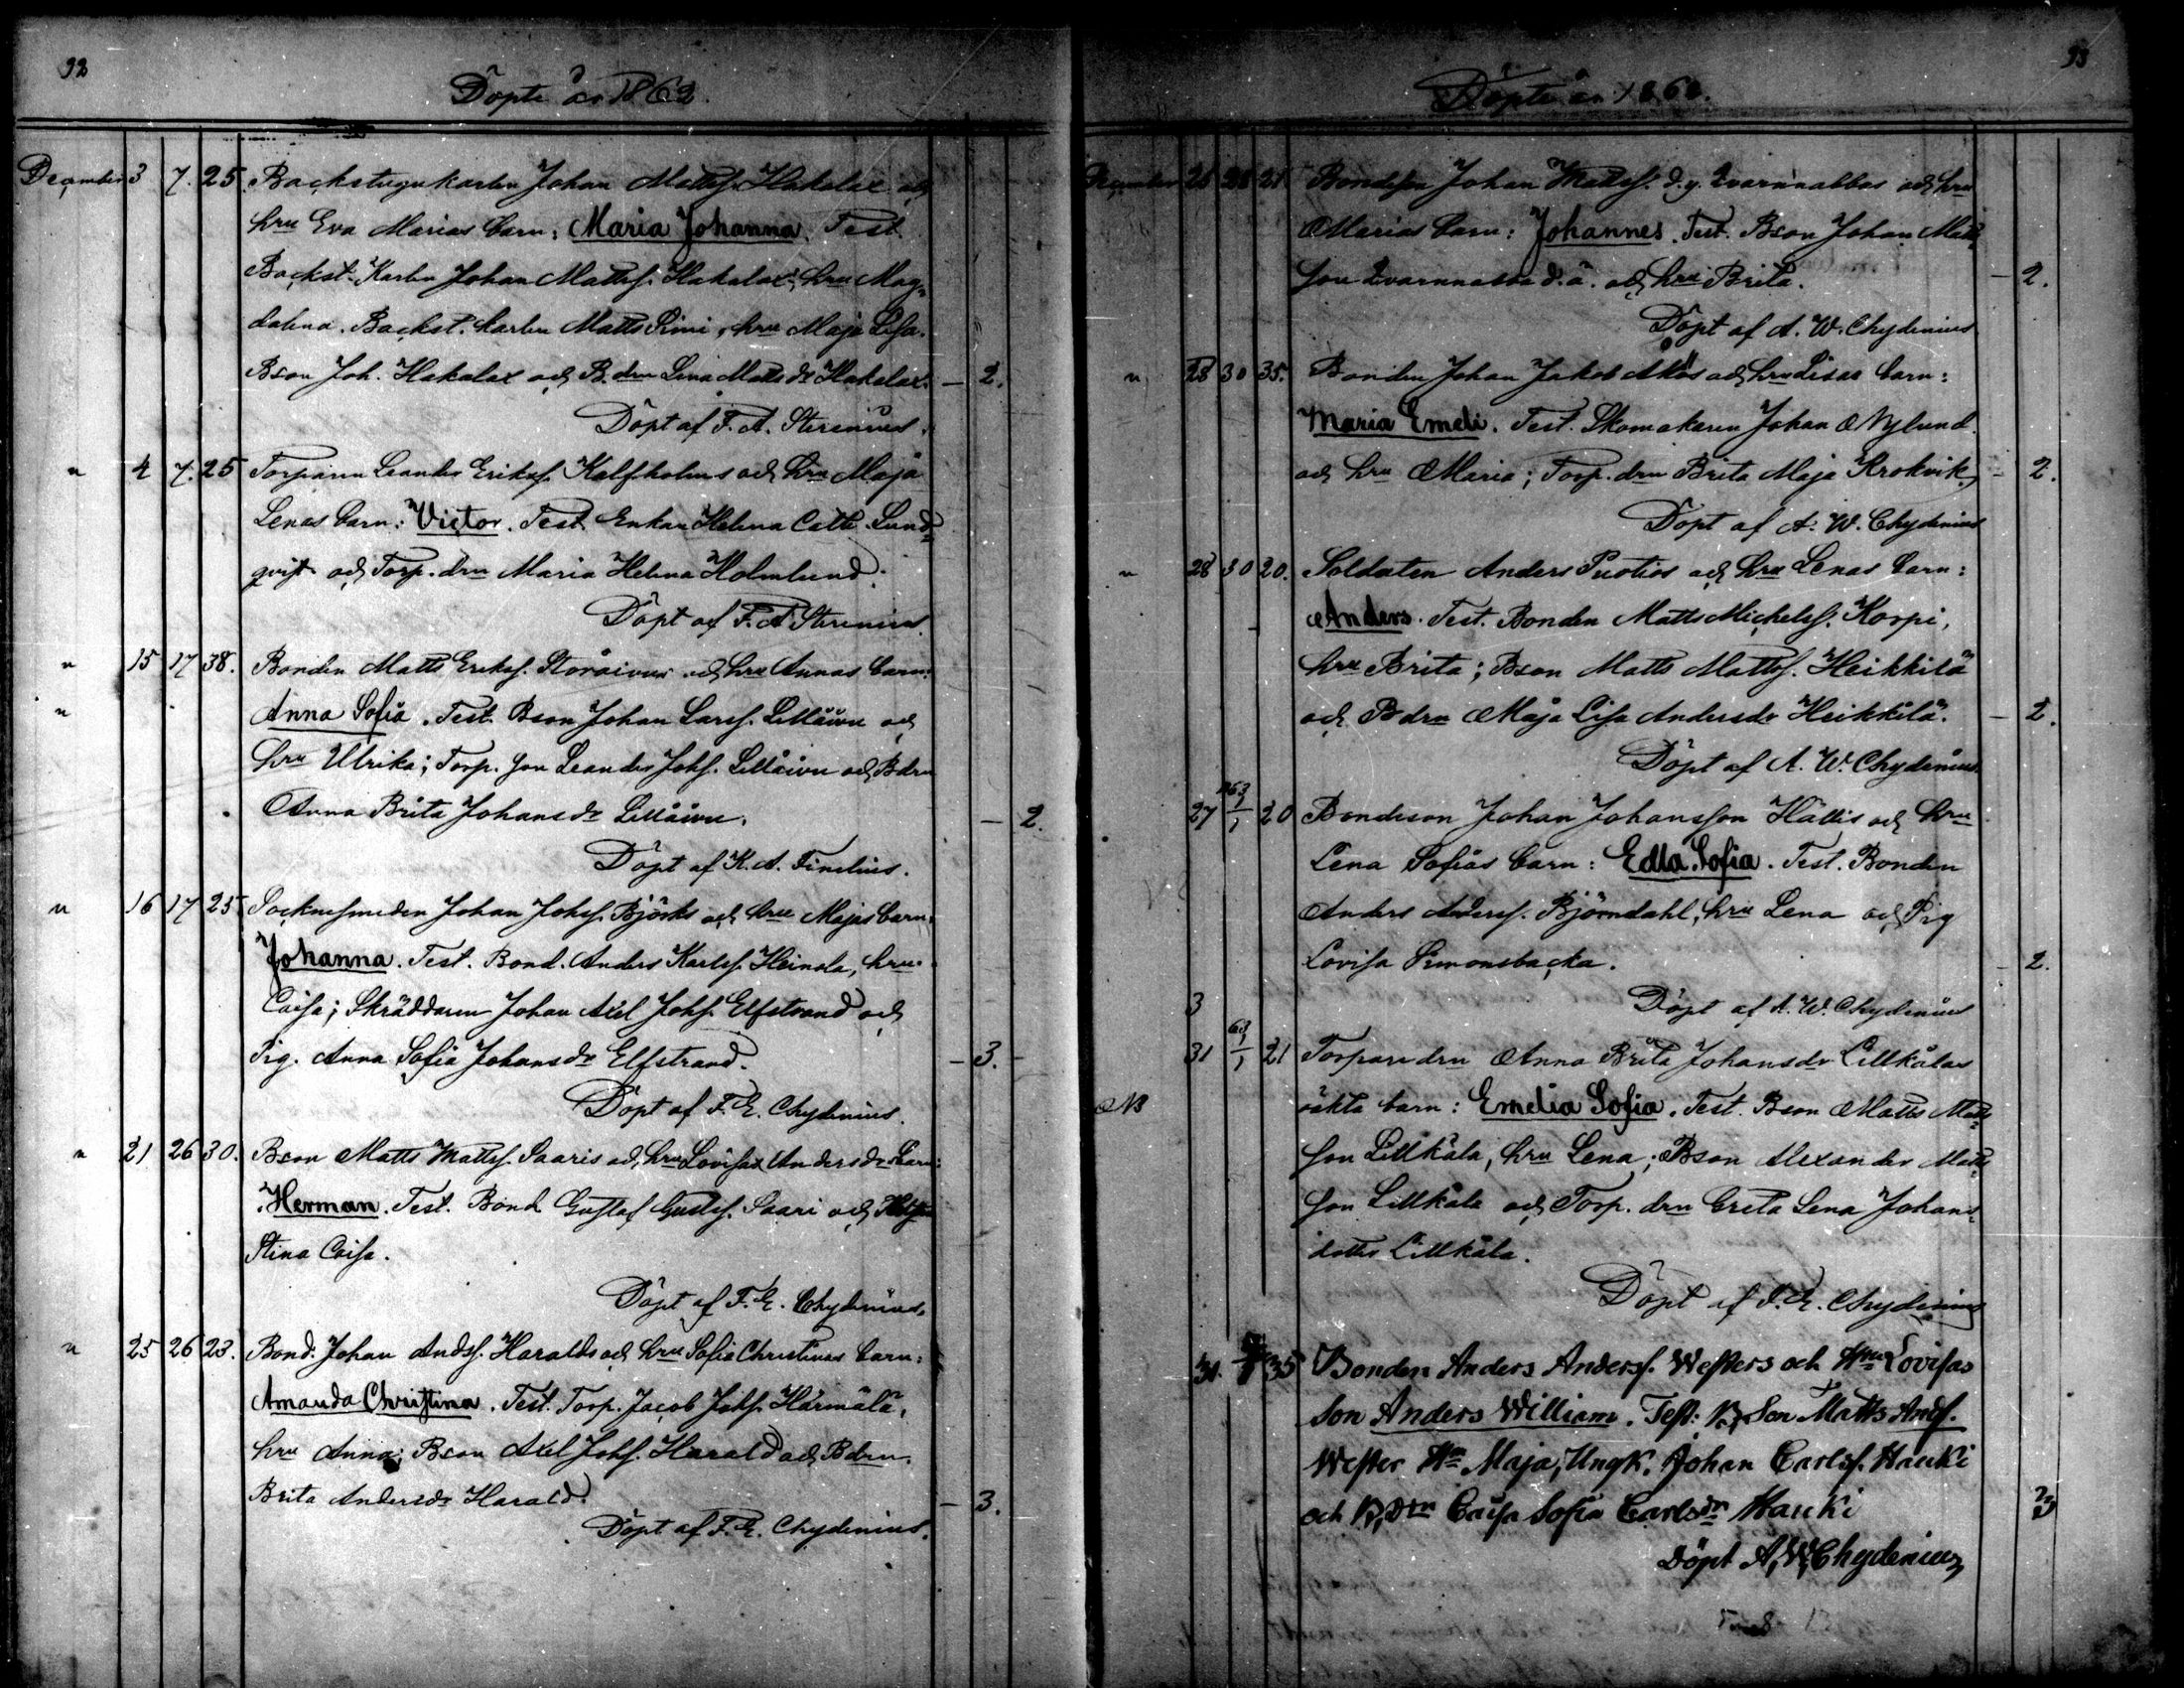 92
Döpte år 1862.
December 3 7. 25. Backstugukarlen Johan Mattss. Hakalax och
hru Eva Marias barn: Maria Johanna. Test.
Backst. Karlen Johan Mattss. Hakalax, hru Mag-
dalena. Backst. karlen Matts Simi, hru Maja Lisa.
Bson Joh. Hakalax och B. drn Lina Matts dr Hakalax. – 2.
Döpt af F. A. Sterenius.
" 4 7. 25 Torparen Leander Eriks. Kalfholms och hru Maja
Lenas barn: Victor. Test. Enkan Helena Cath. Lund-
qvist och Torp. drn Maria Helena Holmlund.
Döpt af F. A. Sterenius.
" 15 17 38. Bonden Matts Eriks. Storåivus och hru Annas barn:
" Anna Sofia. Test. Bson Johan Larss. Lillåivu och
hru Ulrika; Torp. son Leander Johs. Lillåivu och Bdrn
Anna Brita Johansdr Lillåivu. – 2.
Döpt af K. A. Finelius.
" 16 17 25 Socknesmeden Johan Johs. Björks och hru Majas barn:
Johanna. Test. Bond. Anders Karlss. Heinola, hru
Caisa; Skräddaren Johan Axel Johs. Elfstrand och
Pig. Anna Sofia Johansdr Elfstrand. – 3. –
Döpt af F. E. Chydenius.
" 21 26 30. Bson Matts Mattss. Saaris och hru Lovisas Andersdr barn:
Herman. Test. Bond Gustaf Gusts. Saari och
Stina Caisa.
Döpt af F. E. Chydenius.
" 25 26 23. Bond. Johan Andss. Haralds och hru Sofia Christinas barn:
Amanda Christina. Test. Torp. Jacob Johs. Härmälä,
hru Anna; Bson Axel Johs. Harald och Bdrn.
Brita Andersdr Harald. – 3.
Döpt af F. E. Chydenius.
93
Döpte år 1862.
December 21 Bondeson Johan Mattss. d.y. Qvarnnabbas och hru
Marias barn: Johannes. Test. Bson Johan Matts-
son Qvarnnabba d.ä. och hru Brita. – 2.
Döpt af A. W. Chydenius
" 28 30 35. Bonden Johan Jakob och hru Lisas barn:
Maria Emeli. Test. Skomakaren Johan Nylund
och hru Maria; Torp. drn Brita Maja Krokvik. – 2.
Döpt af A. W. Chydenius
" 28 30 20. Soldaten Anders Puotios och hru Lenas barn:
Anders. Test. Bonden Matts Michelss. Korpi,
hru Brita; Bson Matts Mattss. Heikkilä
och Bdrn Maja Lisa Andersdr Heikkilä. – 2.
Döpt af A. W. Chydenius.
27 1/1 63 20 Bondeson Johan Johansson Hällis och hru
Lena Sofias barn: Edla Sofia. Test. Bonden
Anders Anderss. Björndahl, hru Lena och Pig
Lovisa Simonsbacka. – 2.
3 Döpt af A. W. Chydenius
31 1/1 63 21 Torpare drn Anna Brita Johansdr Lillkålas
oäkta barn: Emelia Sofia. Test. Bson Matts Matts-
NB
son Lillkåla, hru Lena; Bson Alexander Matts-
son Lillkåla och Torp. drn Greta Lena Johans-
dotter Lillkåla.
Döpt af F. E. Chydenius
31. 35 Bonden Anders Anderss. Westers och Hru Lovisas
Son Anders William. Test: B, Son Matts Ands.
Wester Hru Maja, Ungk. Johan Carlss. Hauki
och B, drn Caisa Sofia Carlsdr Hauki 3
Döpt A, W, Chydenius